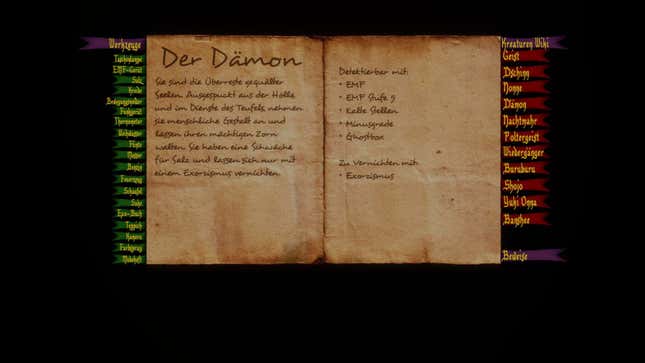 Werkzeuge
Taschenlampe
EMF-Gerät
Salz
Kreide
Bewegungsmelder
Funkgerät
Thermometer
Weihwasser
Messer
Benzin
Feuerzeug
Schaufel
Teppich
Kamera
Der Dämon
Sie sind die Überreste gequälter
Seelen. Ausgespuckt aus der Hölle
und im Dienste des Teufels nehmen
sie menschliche Gestalt an und
lassen ihren mächtigen Zorn
walten. Sie haben eine Schwäche
für Salz und lassen sich nur mit
einem Exorzismus vernichten.
Detektierbar mit:
• EMF
• EMF Stufe 5
• Kalte Stellen
• Minusgrade
• Ghostbox
Zu Vernichten mit:
• Exorzismus
Kreaturen Wiki
Geist
Dschinn
Nonne
Dämon
Nachtmahr
Poltergeist
Wiedergänger
Buruburu
Shojo
Yuki Onna
Banshee
Beweise